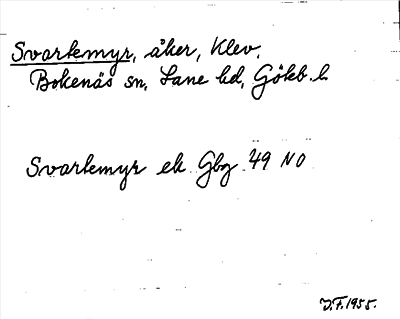 Svarkmyr, åker, Klev.
Bokenäs sn, Lane hd, Göteb. l.
Svarkmyr ek Gbg 49 NO
J.F. 1955.